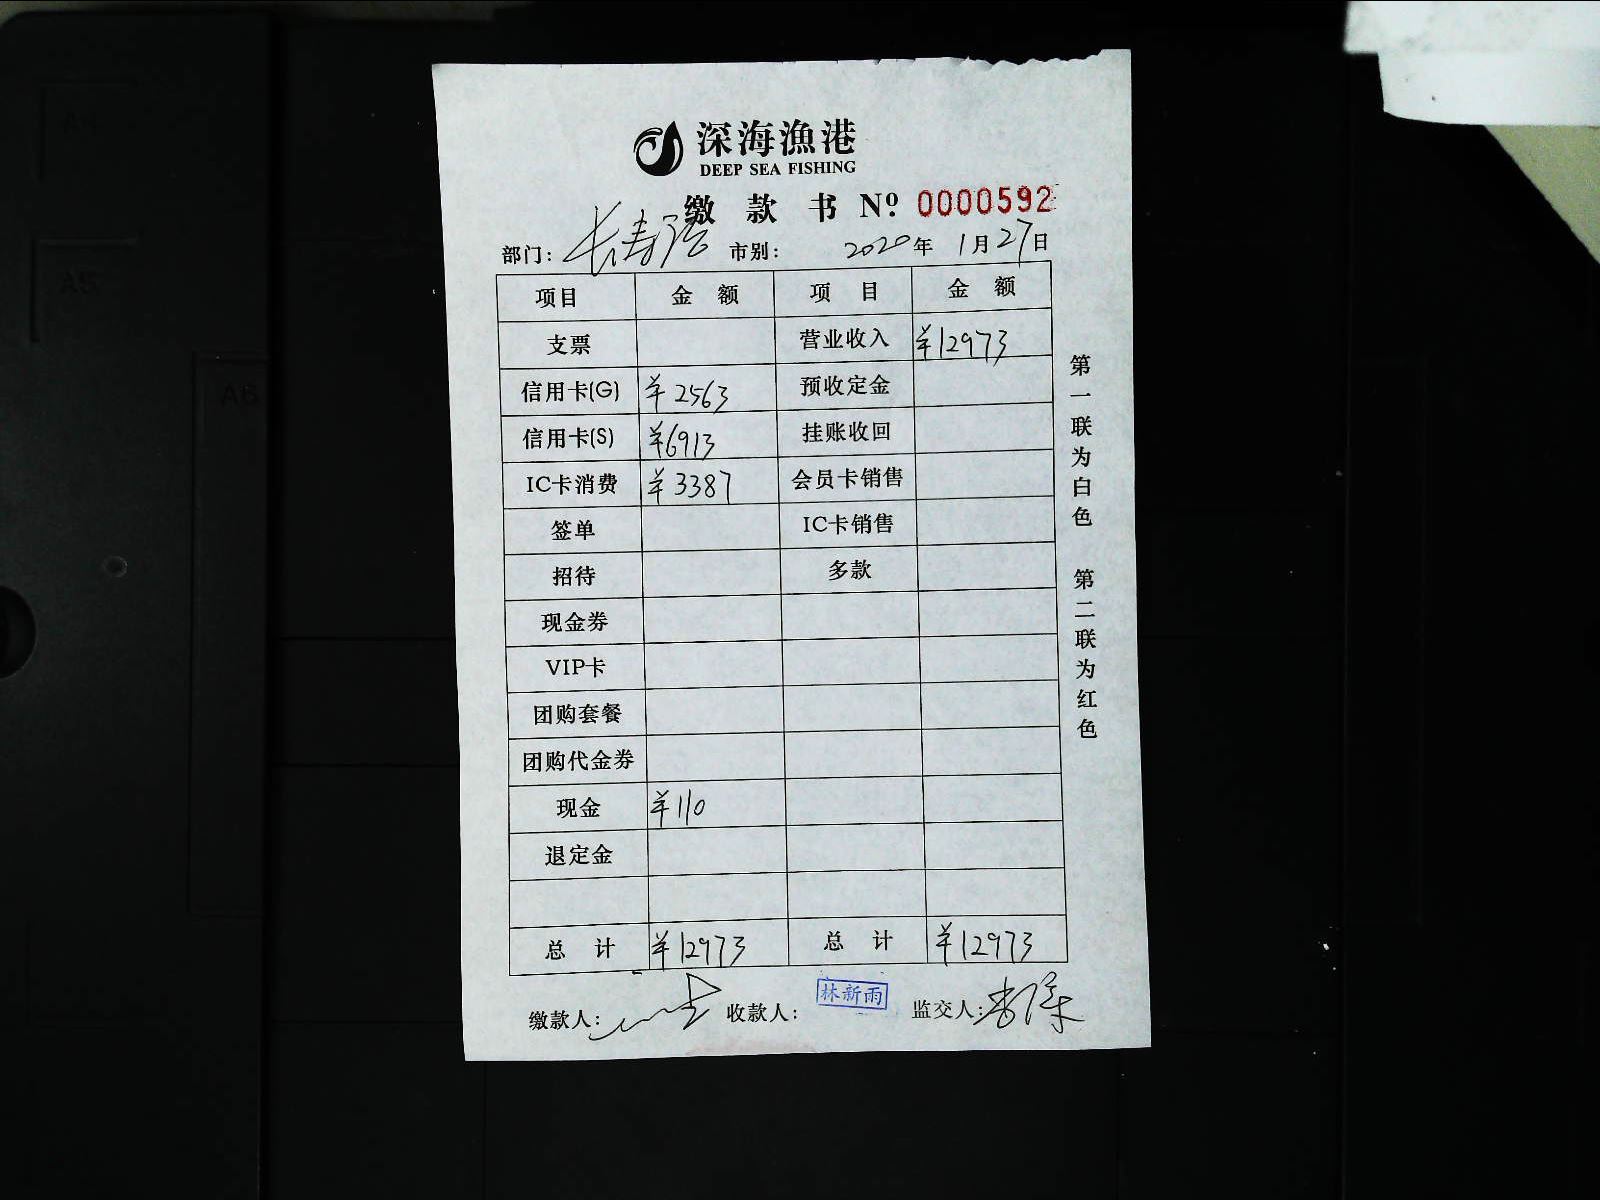 深海漁港
DEEP SEA FISHING
缴 款 书 Nº 0000592
部门: 长寿路 市别: 2020年 1月27日
项目 金 额 项 目 金 额
支票 营业收入 ¥12973
信用卡(G) ¥2563 预收定金
信用卡(S) ¥6913 挂账收回
IC卡消费 ¥3387 会员卡销售
签单 IC卡销售
招待 多款
现金券
VIP卡
团购套餐
团购代金券
现金 ¥110
退定金
总 计 ¥12973 总 计 ¥12973
缴款人: 收款人: 林新雨 监交人:
第一联为白色 第二联为红色
A4
A5
A6